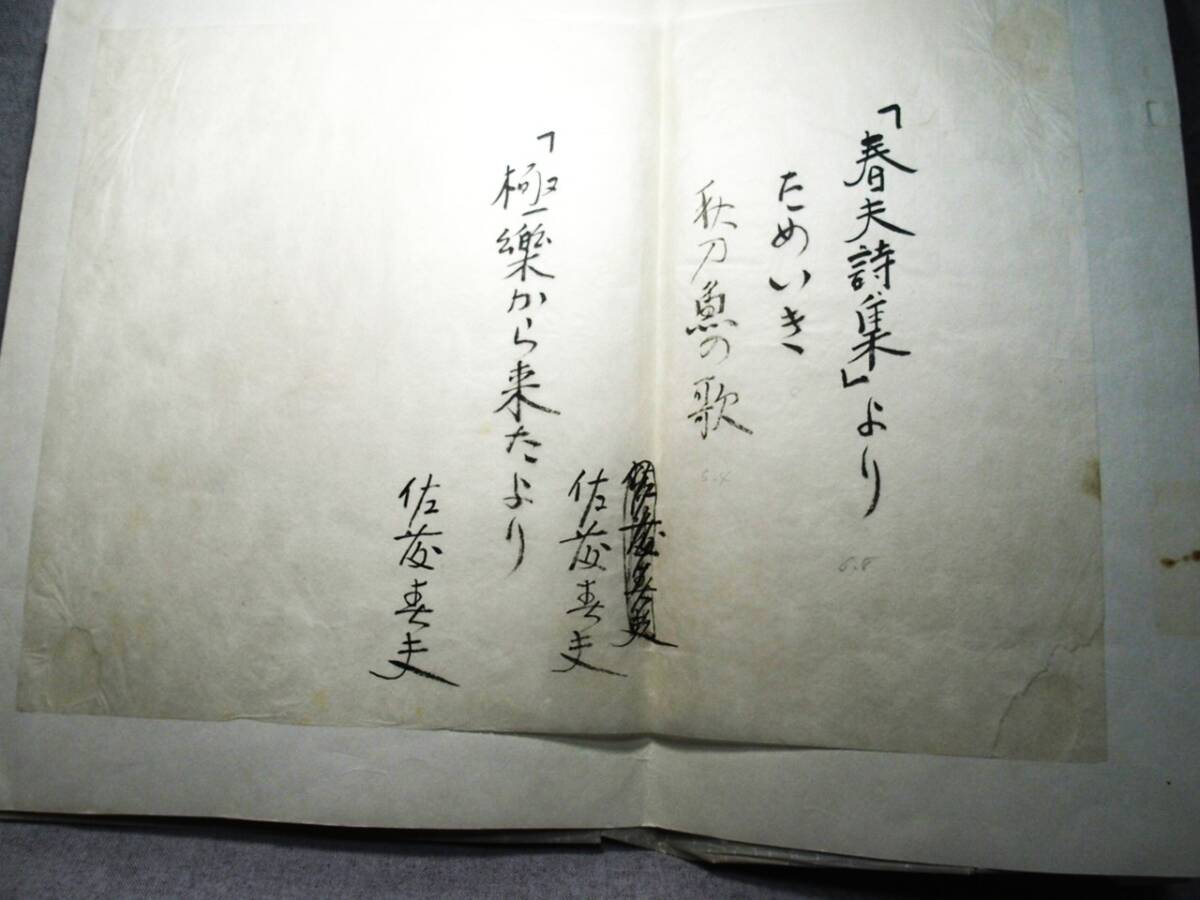 「春夫詩集」より
ためいき
秋刀魚の歌
佐藤春夫
佐藤春夫
「極樂から来たより
佐藤春夫